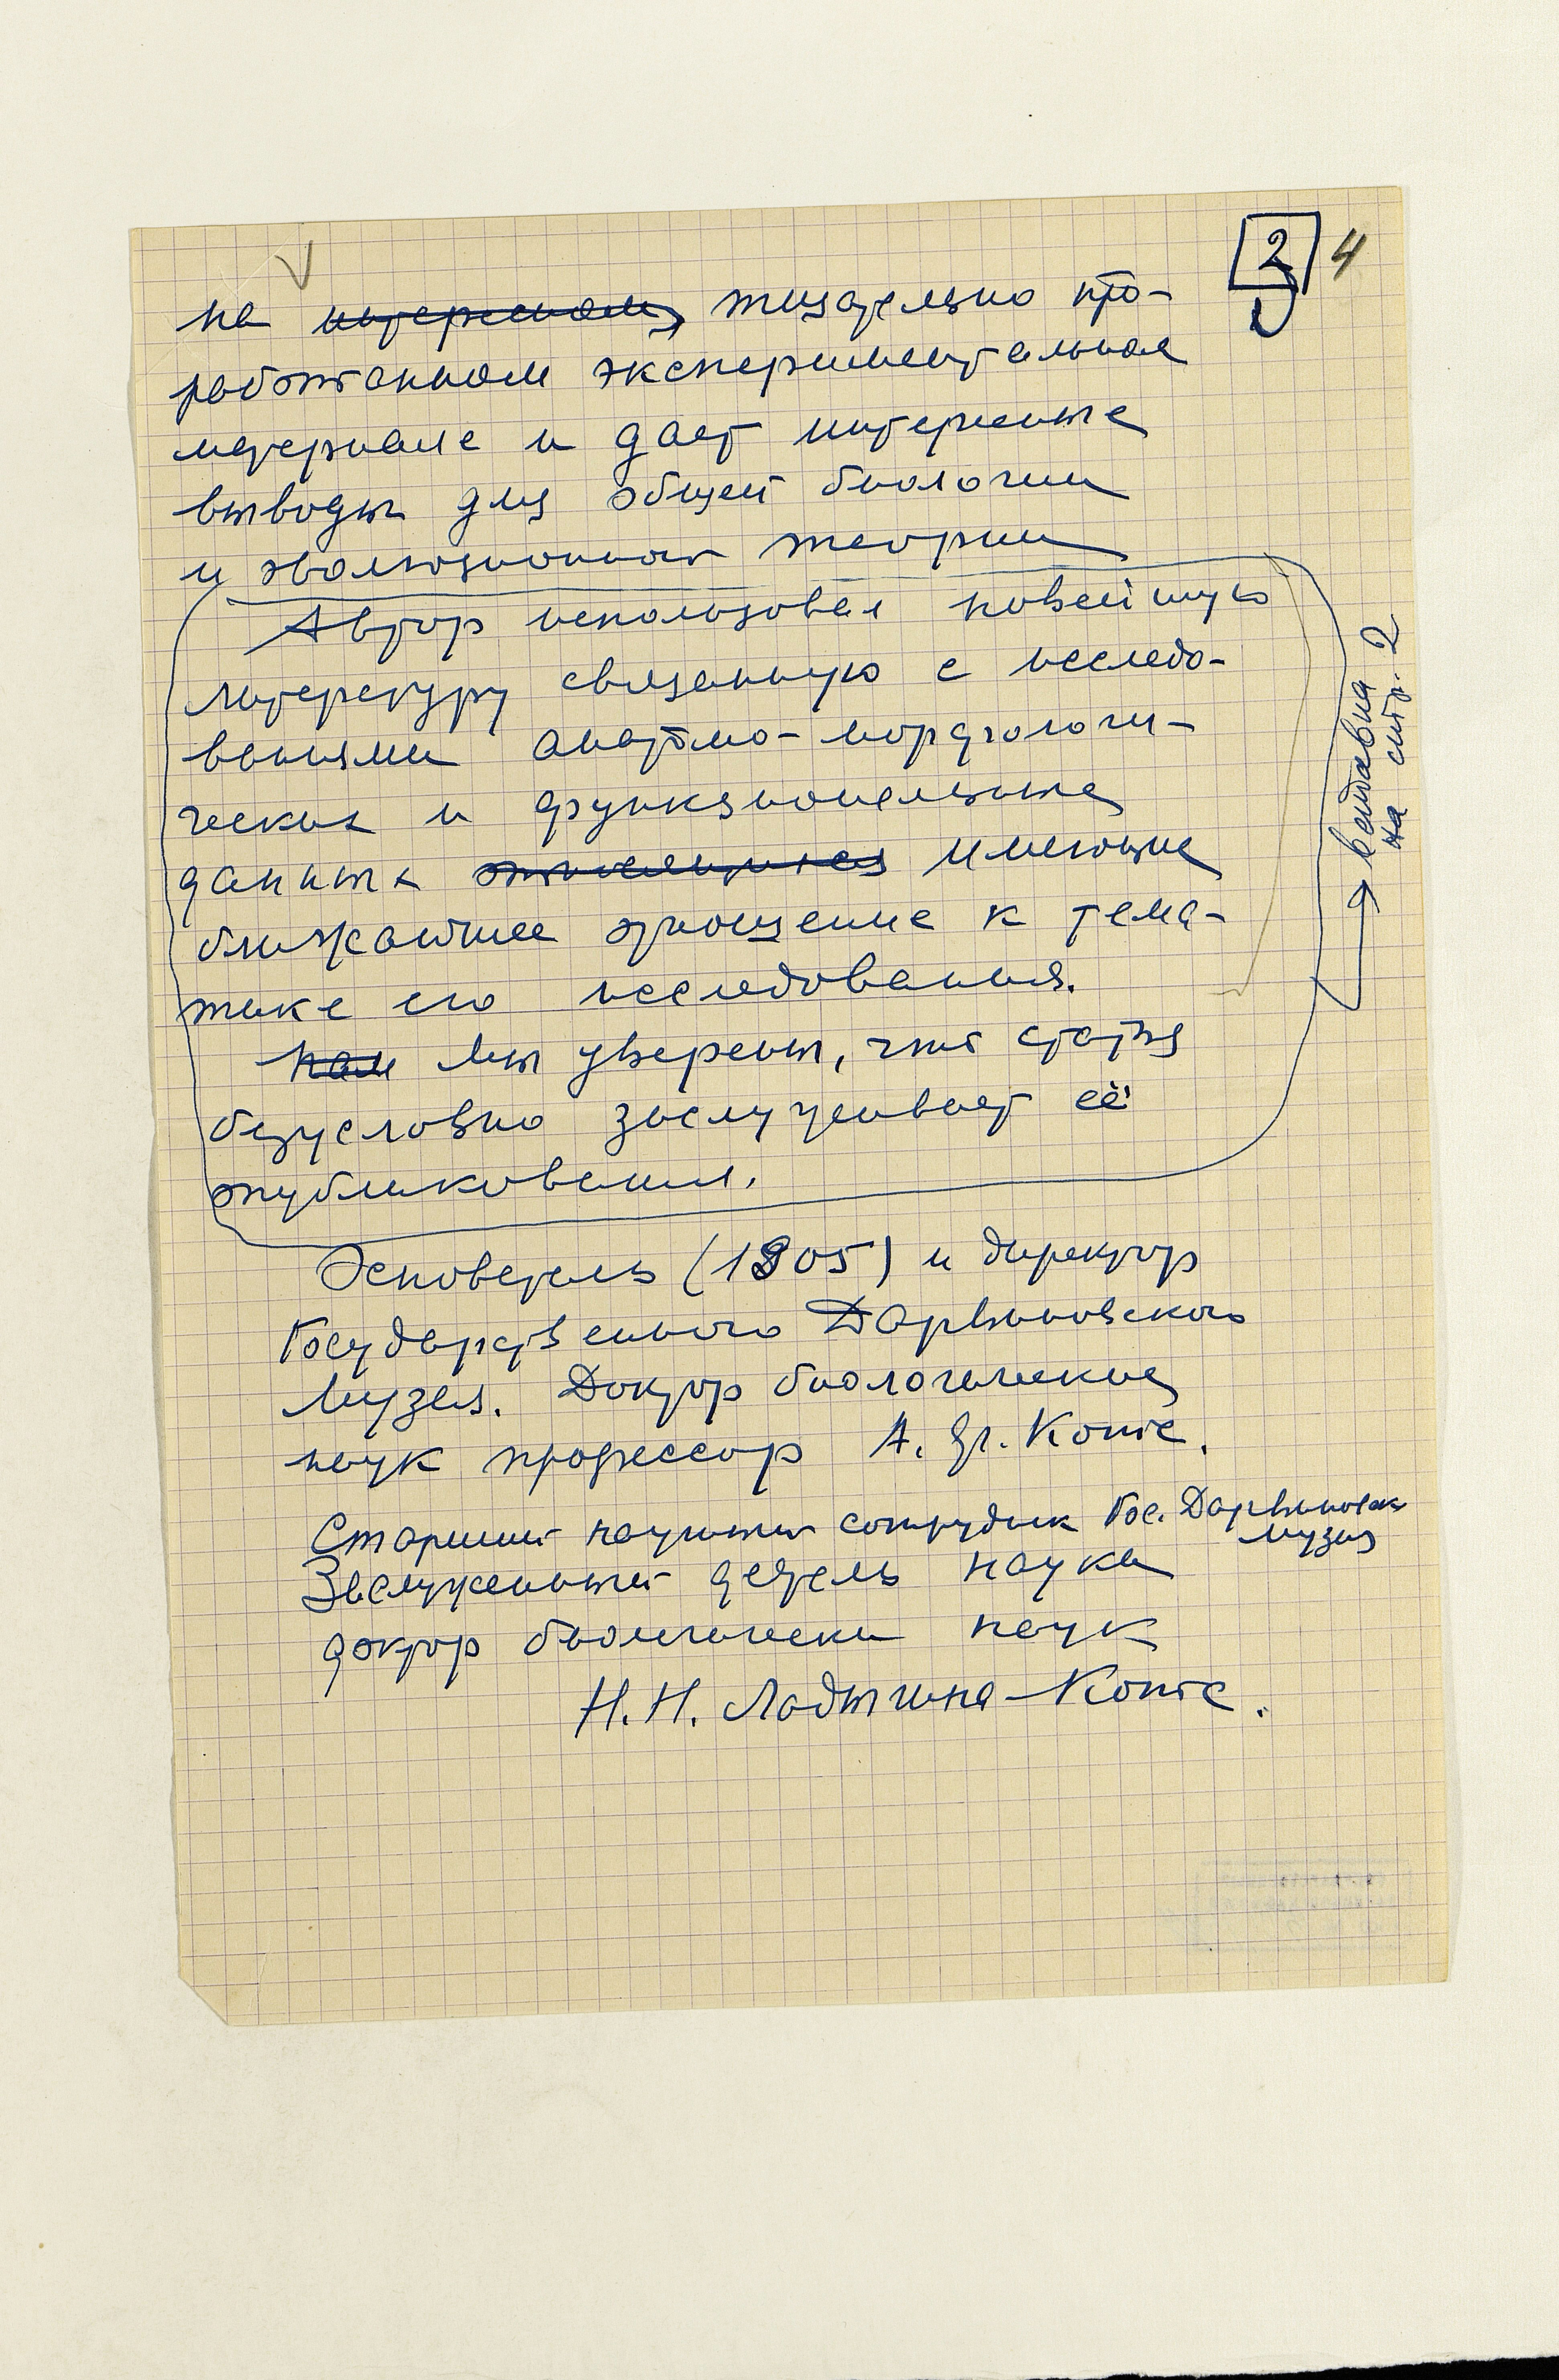 2 4
на интересном, тщательно про-
работанном экспериментальном
материале и дает интересные
выводы для общей биологии
и эволюционной теории
Автор использовал новейшую
литературу связанную с исследо-
ваниями анатомо-морфологи-
ческих и функциональных
данных относящихся имеющие
ближайшее отношение к тема-
тике его исследования.
Нам Мы уверены, что статья
безусловно заслуживает её
опубликования.
вставка
на стр. 2
Основатель (1905) и директор
Государственного Дарвиновского
Музея. Доктор биологических
наук профессор А. Ф. Котс.
Старший научный сотрудник Гос. Дарвиновск
музея
Заслуженный деятель науки
доктор биологически наук
Н. Н. Ладыгина-Котс.